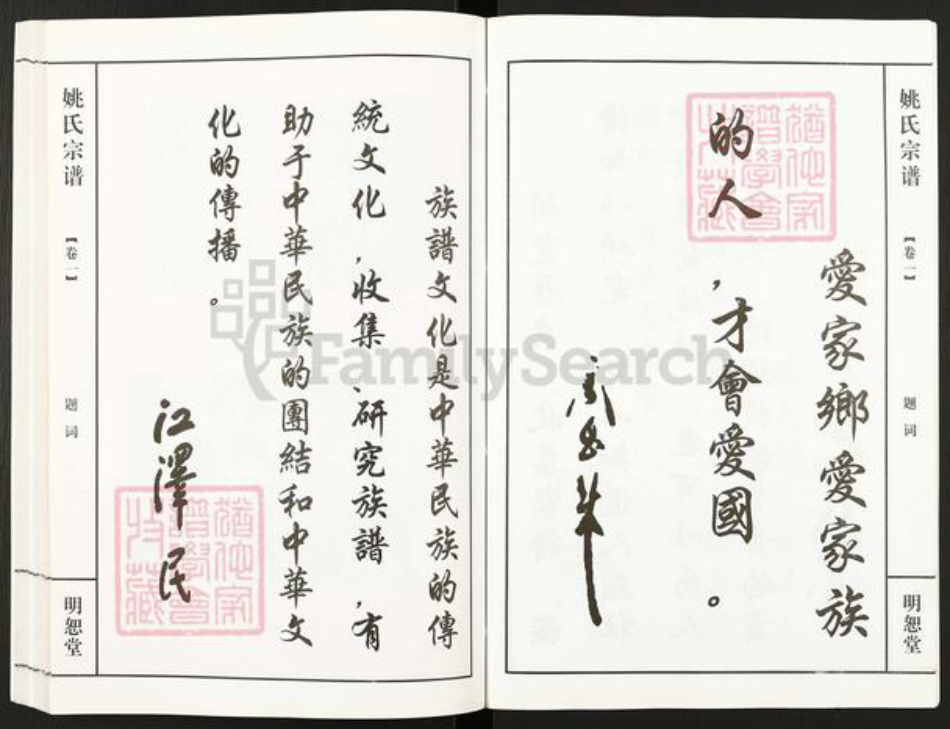 姚氏宗谱
【卷一】
题词
明恕堂
愛家鄉愛家族
的人，才會愛國。
周恩来
族譜文化是中華民族的傳
統文化，收集、研究族譜，有
助于中華民族的團結和中華文
化的傳播。
江澤民
姚氏宗谱
【卷一】
题词
明恕堂
FamilySearch